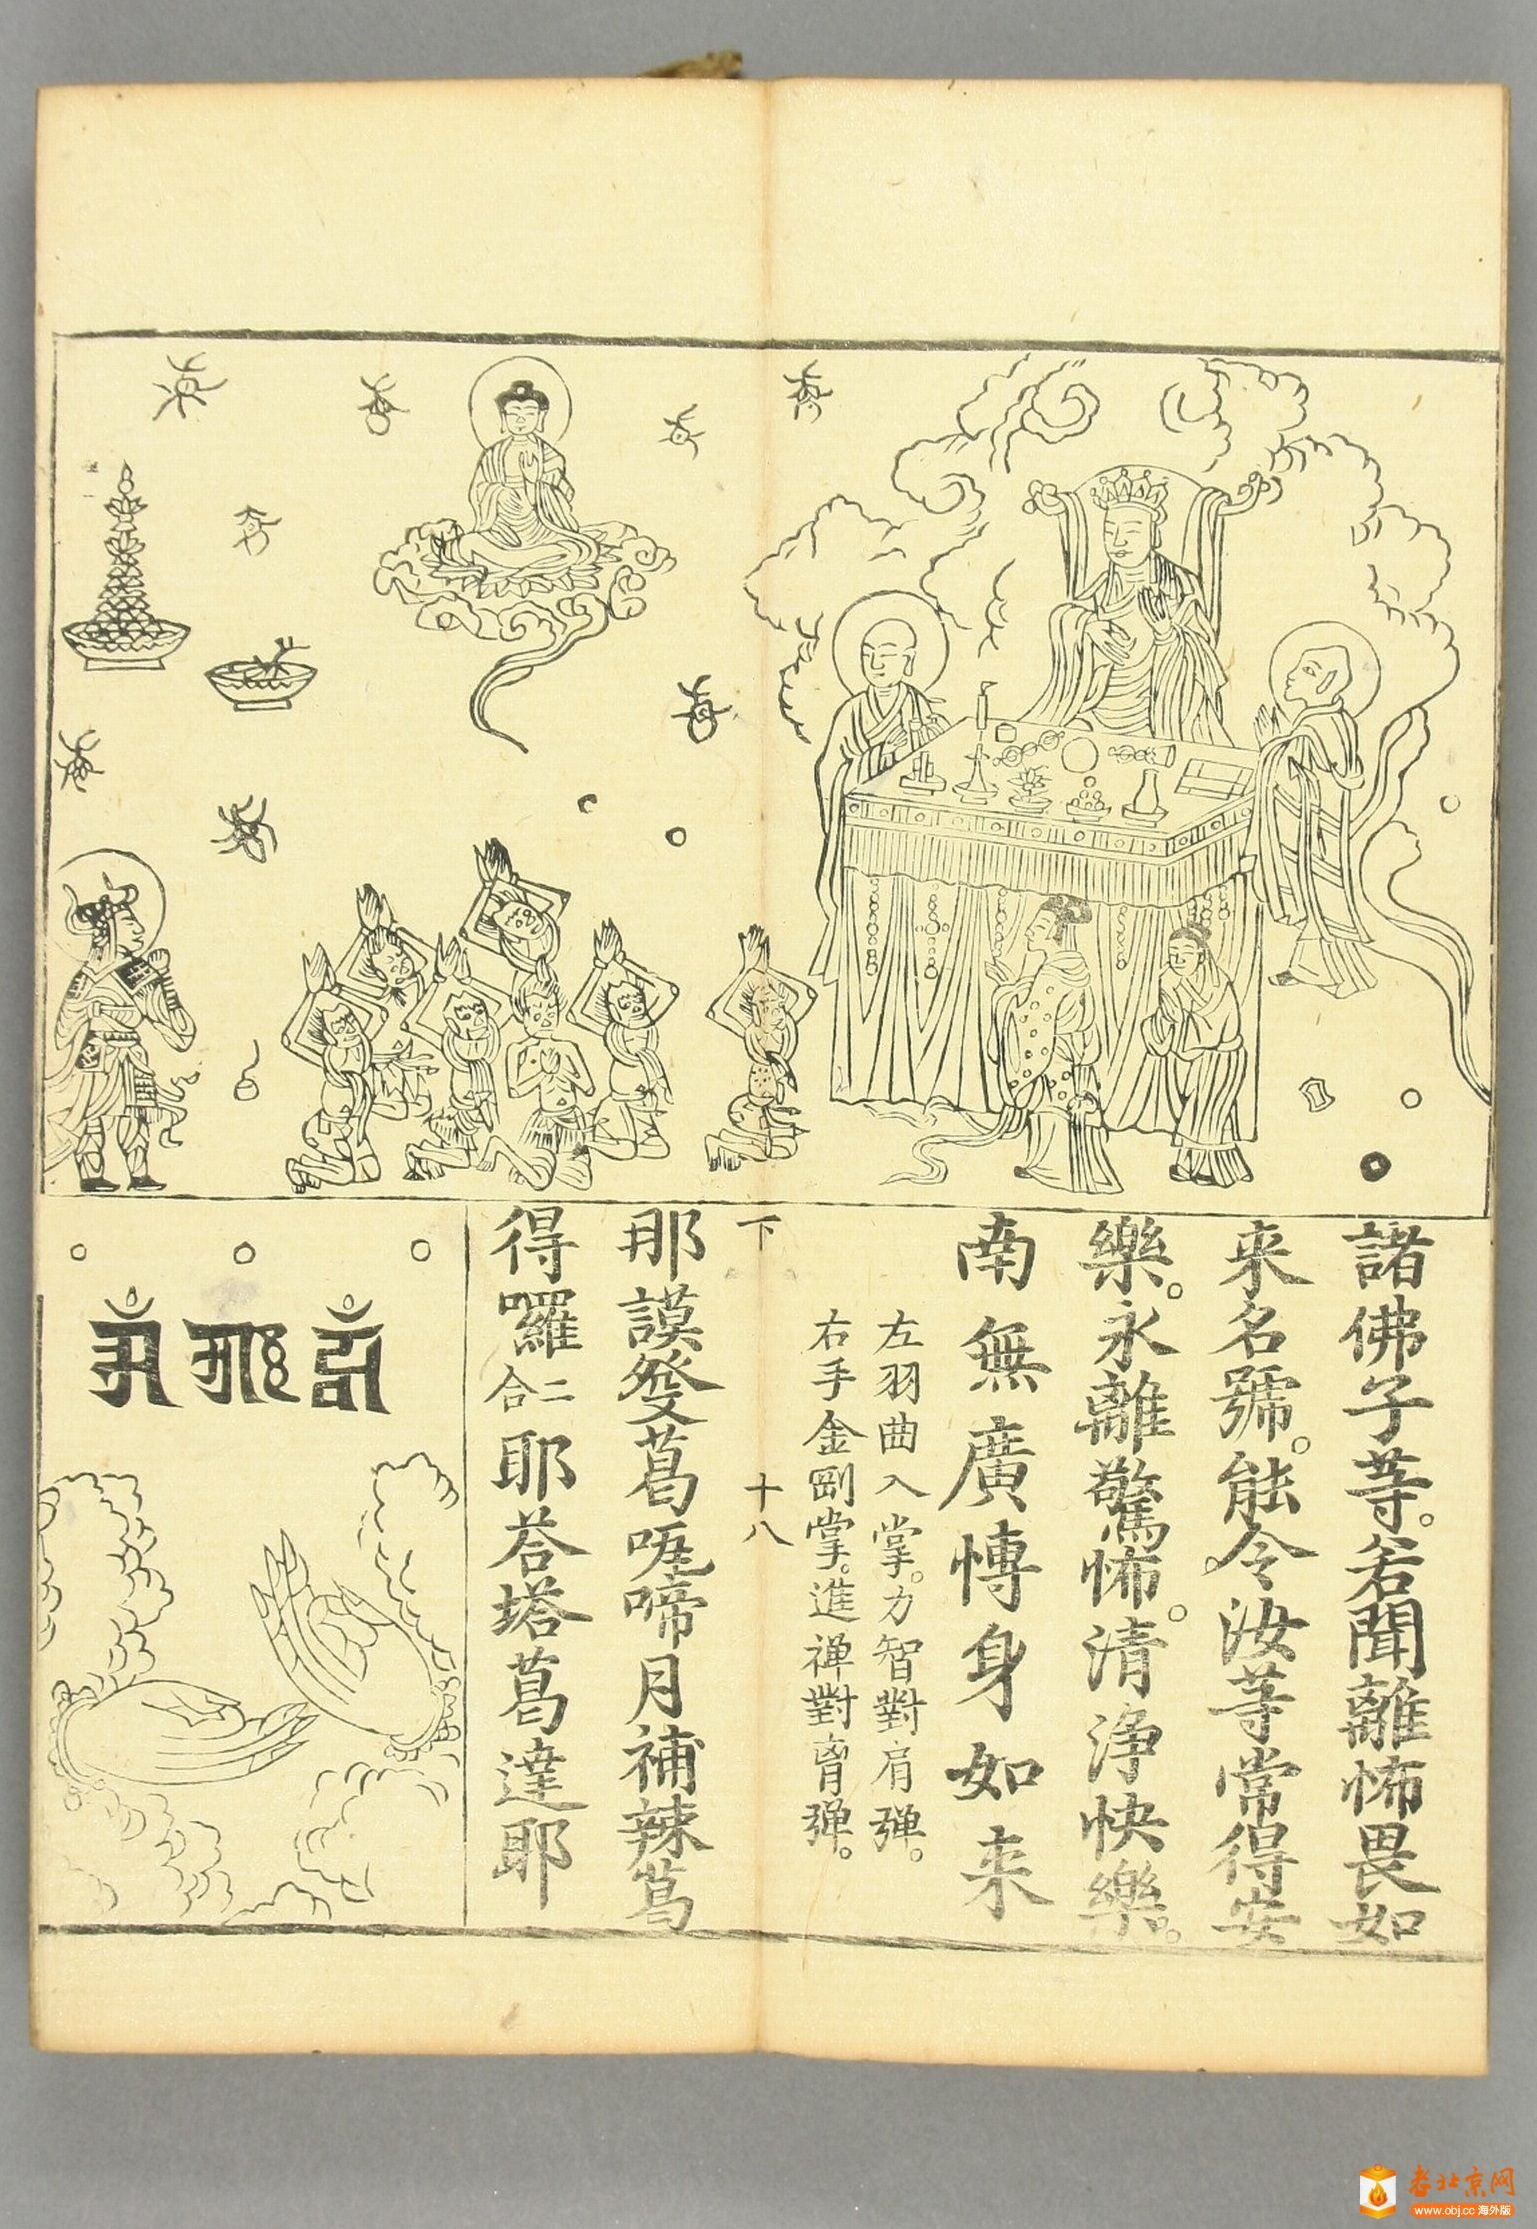 諸佛子等。若聞離怖畏如
来名號。能令。汝等常得安
樂。永離驚怖。清淨快樂。
南無廣博身如来
左羽曲入掌。力智對肩弾。
右手金剛掌。進禅對脣弾。
下 十八
那謨癹葛嚩啼月補辣葛
得囉二合耶荅塔葛達耶
老北京网
www.obj.cc 海外版